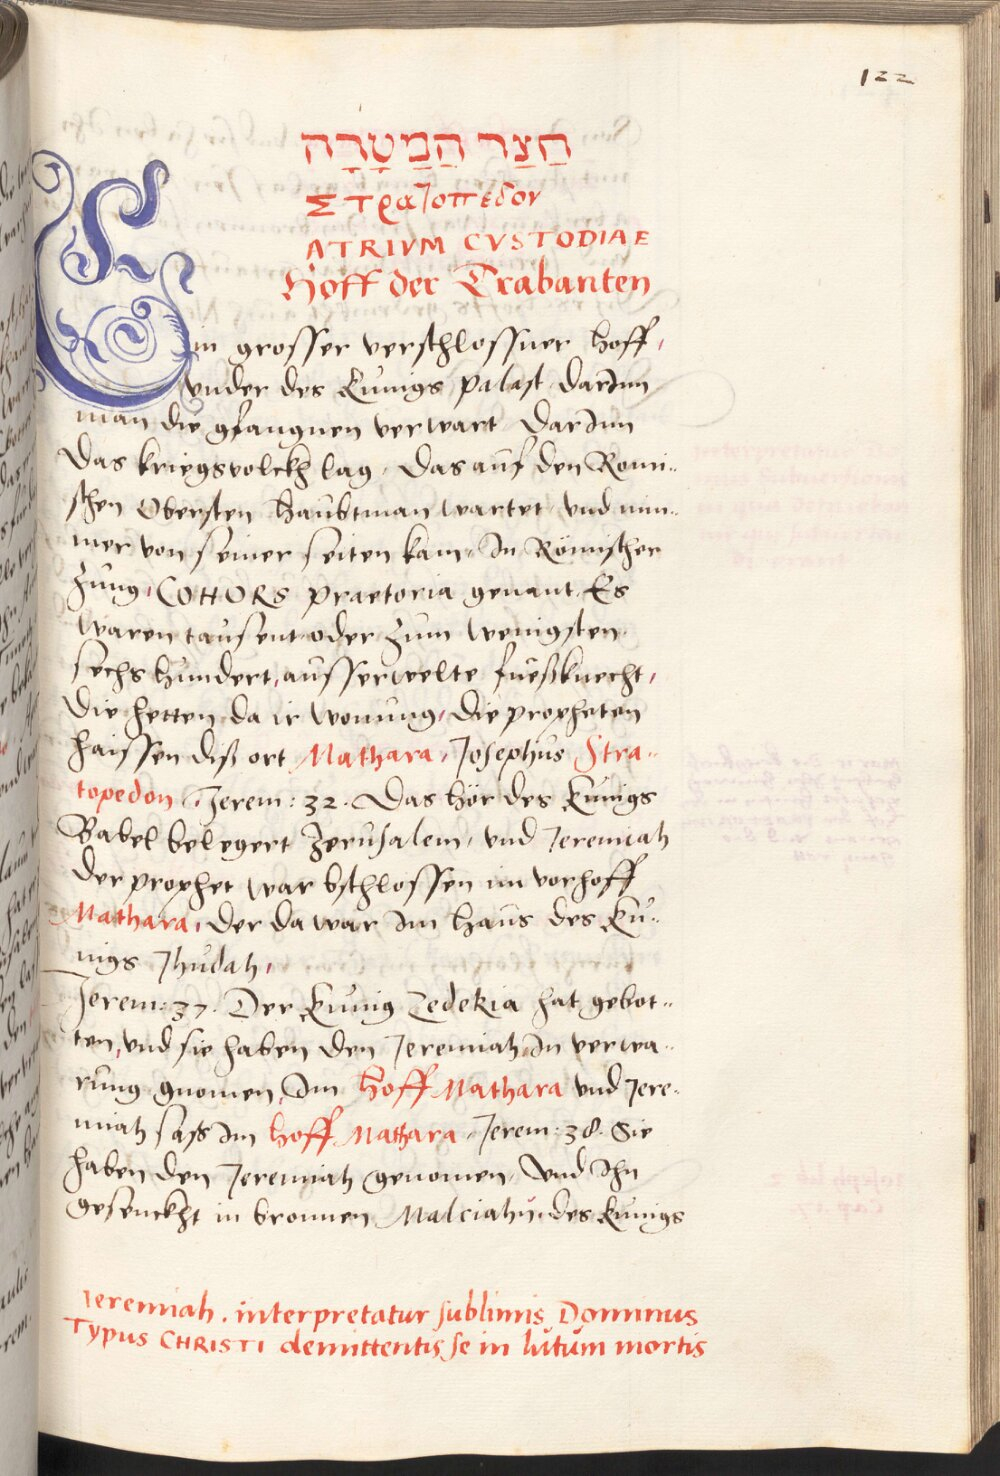 122
חַצַר הַמַטָרָה
Στρατοπεδον
ATRIVM CVSTODIAE
Hoff der Trabanten
Ein grosser verschlossner hoff,
vnder des Kunigs palast darInn
man die gfangnen verwart DarInn
Das kriegsvolckh lag, Das auf den Romi=
schen Obersten haubtman wartet vnd nim=
mer von seiner seiten kam, In Römischer
Zung, COHORS praetoria genant. Es
waren tausent oder zum wenigsten
sechs hundert, ausserwelte fueßknecht,
Die hetten da ir wonung, die propheten
haissen diß ort Mathara, Josephus Stra=
topedon Jerem: 32. Das hör des Kunigs
Babel belegert Jerusalem, vnd Jeremiah
der prophet war bschlossen im vorhoff
Mathara, der da war im haus des Ku=
nigs Jhudah,
Jerem: 37. Der Kunig Zedekia hat gebot=
ten, vnd sie haben den Jeremiah In verwa=
rung gnomen, Im hoff Mathara vnd Jere=
miah sass Im hoff Mathara, Jerem: 38. Sie
haben den Jeremiah genomen, vnd Ihn
gesenckht in bronnen Malciahu, des Kunigs
Ieremiah. interpretatur sublimis Dominus
Typus CHRISTI demittentis se in lutum mortis